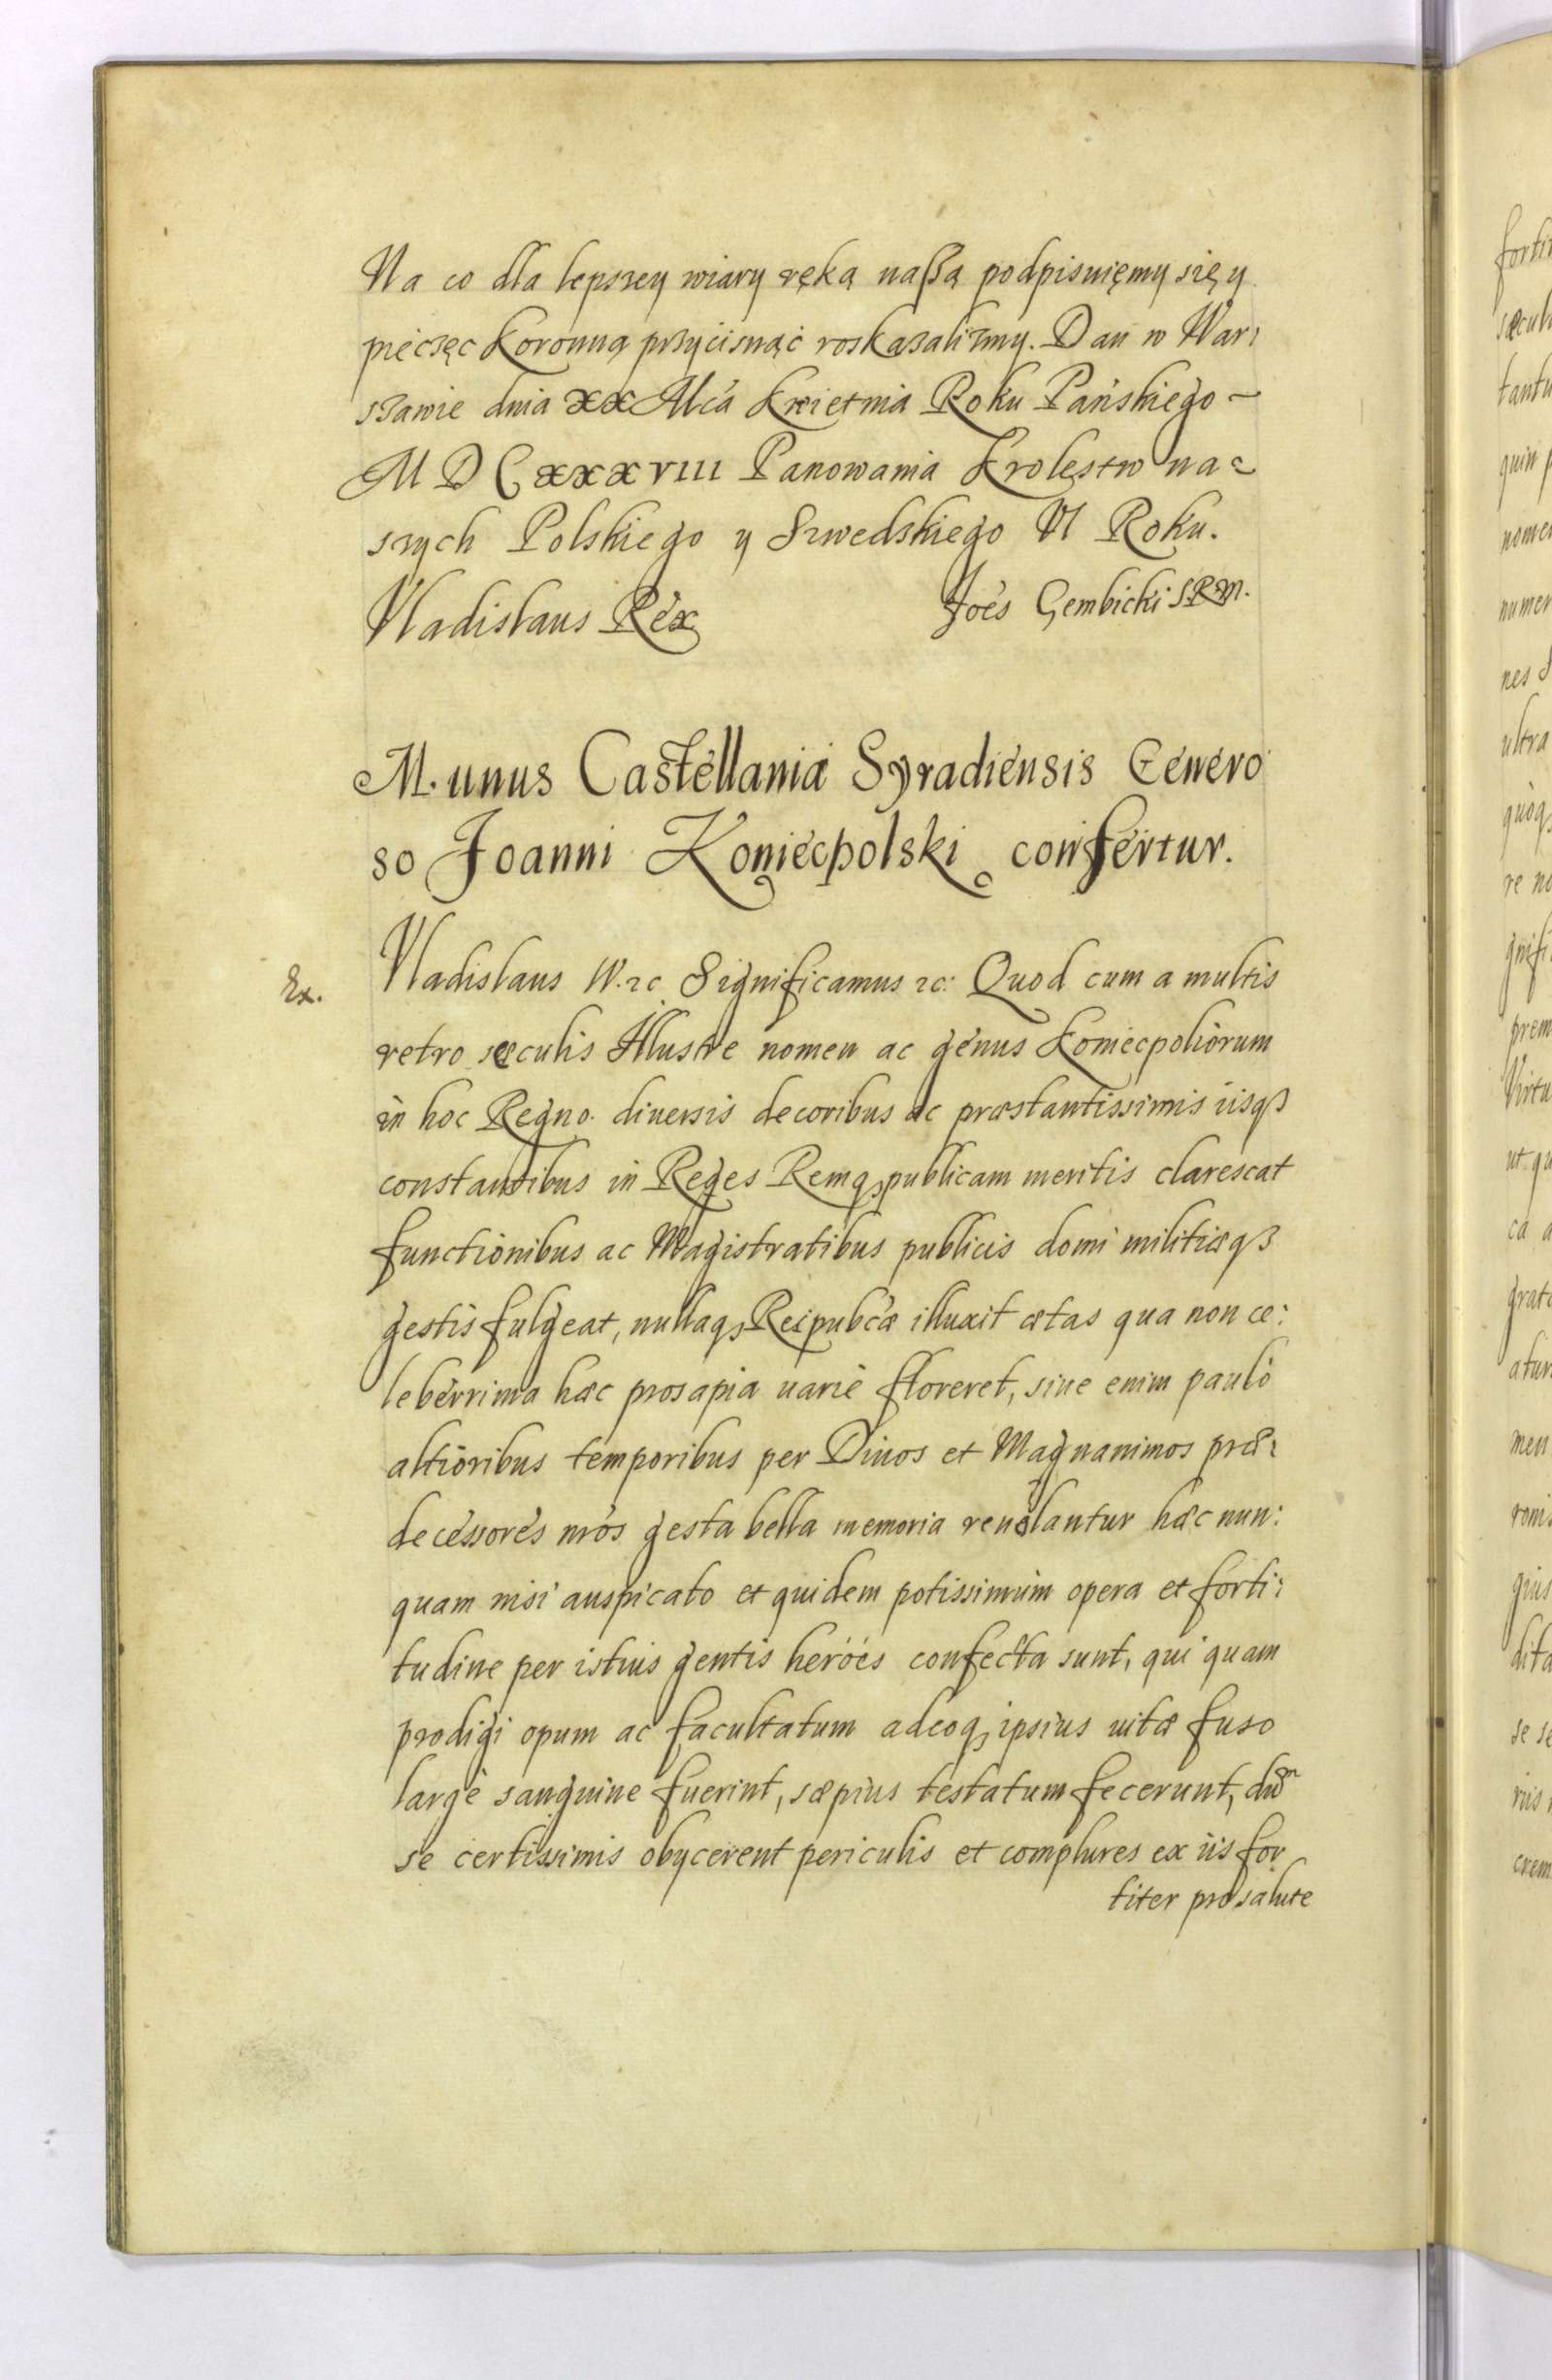 Na co dla lepszey wiary ręką naßą podpisuięmy się y
pieczęc Koronną przycisnąć roskazalismy. Dan w War:
szawie dnia XX Mca Kwietnia Roku Pańskiego –
MDCXXXVIII Panowania Krolestw na:
szych Polskiego y Szwedskiego VI Roku.
Vladislaus Rex Joes Gembicki S.R.M.
Munus Castellaniæ Syradiensis Genero
so Joanni Koniecpolski confertur.
Ex. Vladislaus IV. ꝛc Significamus ꝛc: Quod cum a multis
retro sæculis Illustre nomen ac genus Koniecpoliorum
in hoc Regno diuersis decoribus ac præstantissimis iisqꝫ
constantibus in Reges Remqꝫ publicam meritis clarescat
functionibus ac Magistratibus publicis domi militiæqꝫ
gestis fulgeat, nullaqꝫ Reipubcæ illuxit ætas qua non ce:
leberrima hæc prosapia uariè floreret, siue enim paulò
altioribus temporibus per Diuos et Magnanimos præ:
decessores nros gesta bella memoria reuoluantur hæc nun:
quam nisi auspicato et quidem potissimùm opera et forti:
tudine per istius gentis heróes confecta sunt, qui quam
prodigi opum ac facultatum adeoqꝫ ipsius uitæ fuso
largè sanguine fuerint, sæpius testatum fecerunt, dũ
se certissimis obycerent periculis et complures ex iis for
titer pro salute
fortit
sæcul
tantu
quin p
nomen
numer
nes S
ultra
quoqꝫ
re no
gnifi
prem
Virtu
ut qu
ca a
grat
atur
men
roni
gius
dita
se se
riis
crem